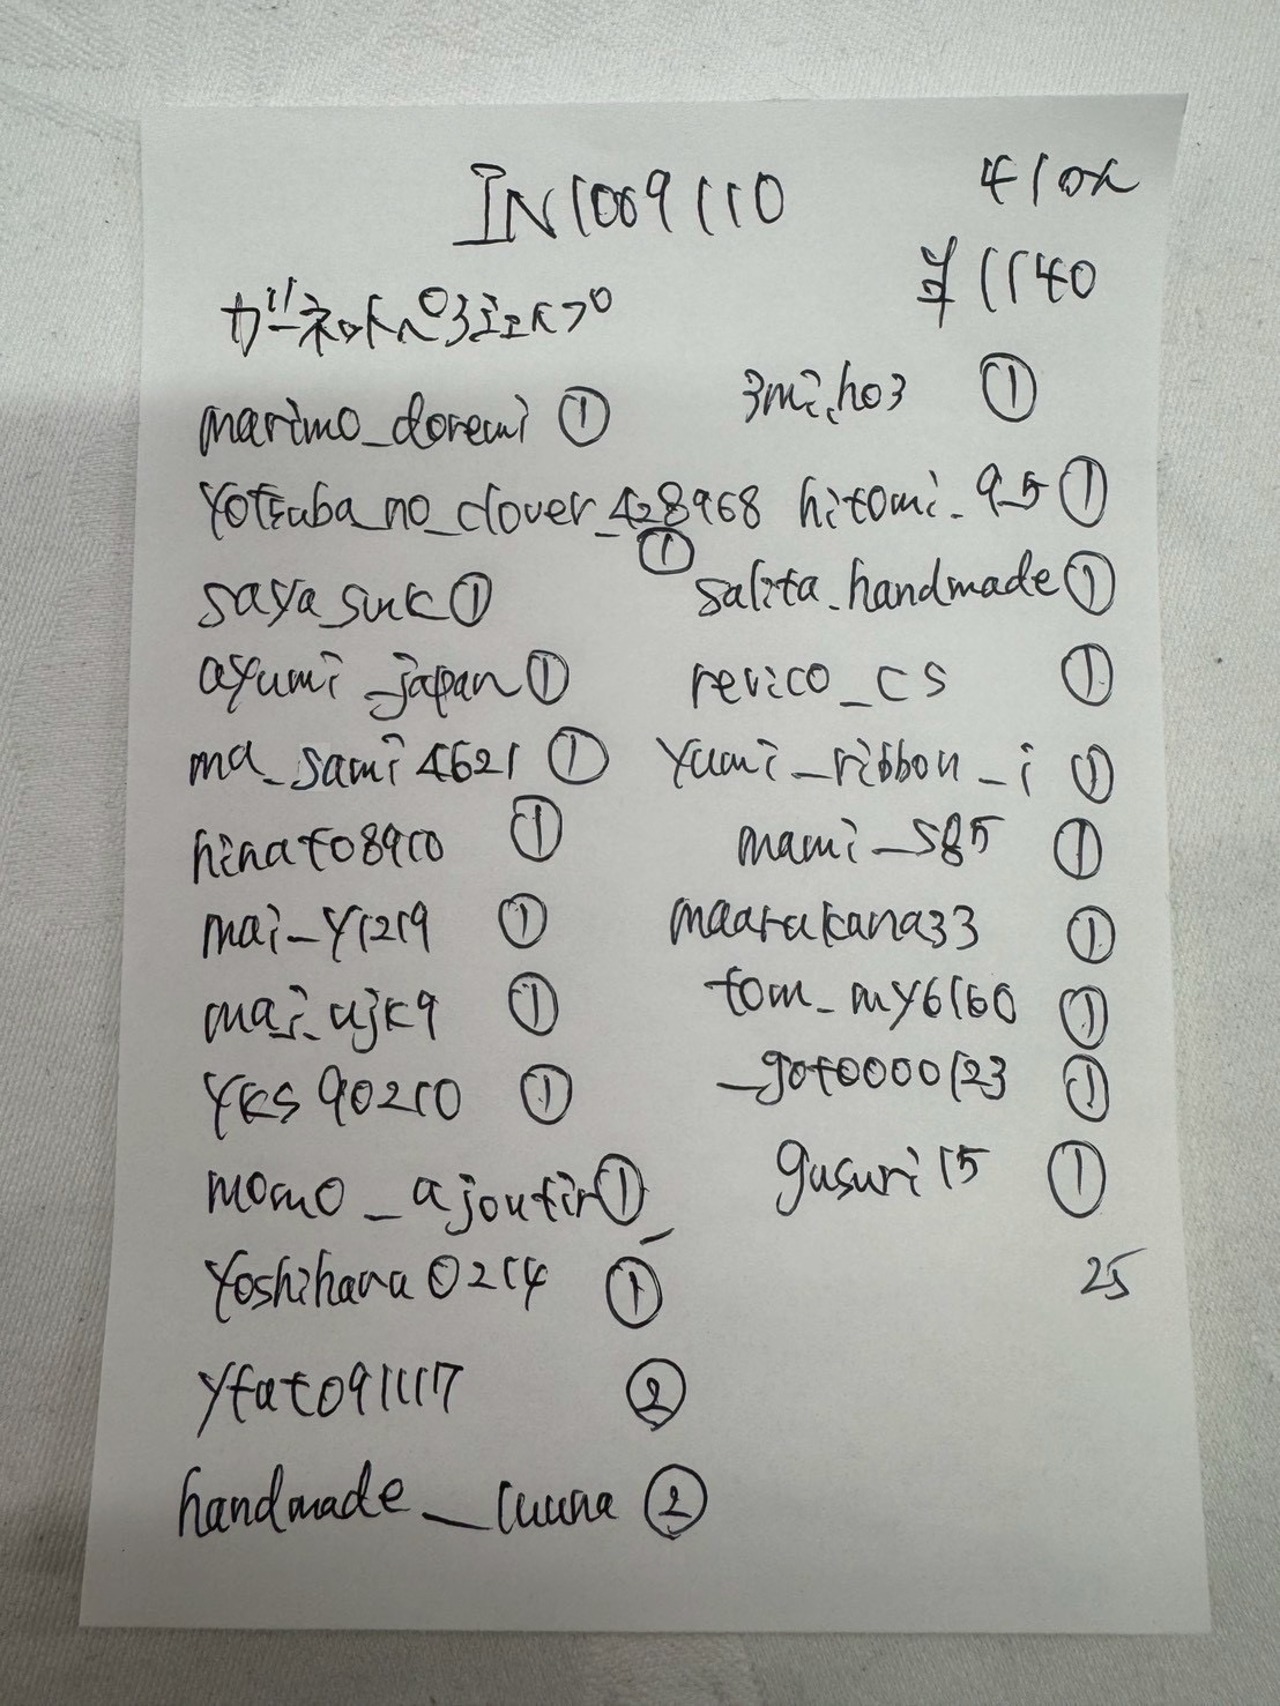 IN1009110
410pc
¥1140
ガーネットペろジェイプ
marimo_doremi ①
yotsuba_no_clover_428968 ①
saya_suuk ①
ayumi_japan ①
ma_sami4621 ①
hinato8910 ①
mai_y1219 ①
mai_ujk9 ①
yks90210 ①
momo_ajoutir_ ①
yoshihana0214 ①
yfat091117 ②
handmade_luuna ②
3mi.ho3 ①
hitomi_9_5 ①
salita_handmade ①
revico_cs ①
yumi_ribbon_i ①
mami_s85 ①
maarukana33 ①
tom_my6160 ①
_goto000123 ①
gusuri15 ①
25